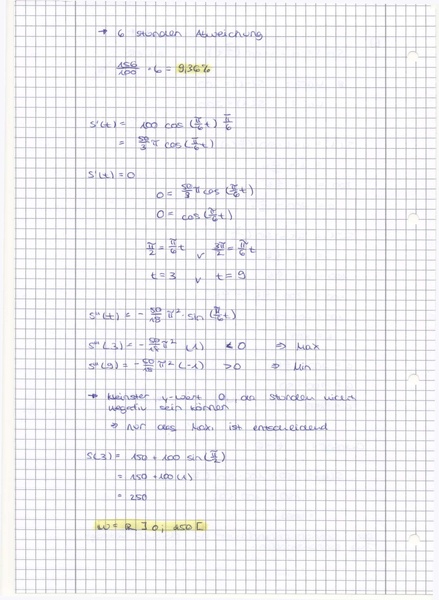 → 6 stunden Abweichung
156/100 · 6 = 9,36%
S'(t) = 100 cos (π/6 t) π/6
= 50/3 π cos (π/6 t)
S'(t) = 0
0 = 50/3 π cos (π/6 t)
0 = cos (π/6 t)
π/2 = π/6 t ∨ 3π/2 = π/6 t
t = 3 ∨ t = 9
S"(t) = - 50/18 π² · sin (π/6 t)
S"(3) = - 50/18 π² (1) < 0 ⇒ Max
S"(9) = - 50/18 π² (-1) > 0 ⇒ Min
→ kleinster y-Wert 0, da stunden nicht
negativ sein können
⇒ nur das Maxi ist entscheidend
S(3) = 150 + 100 sin (π/2)
= 150 + 100 (1)
= 250
W = R ] 0 ; 250 [